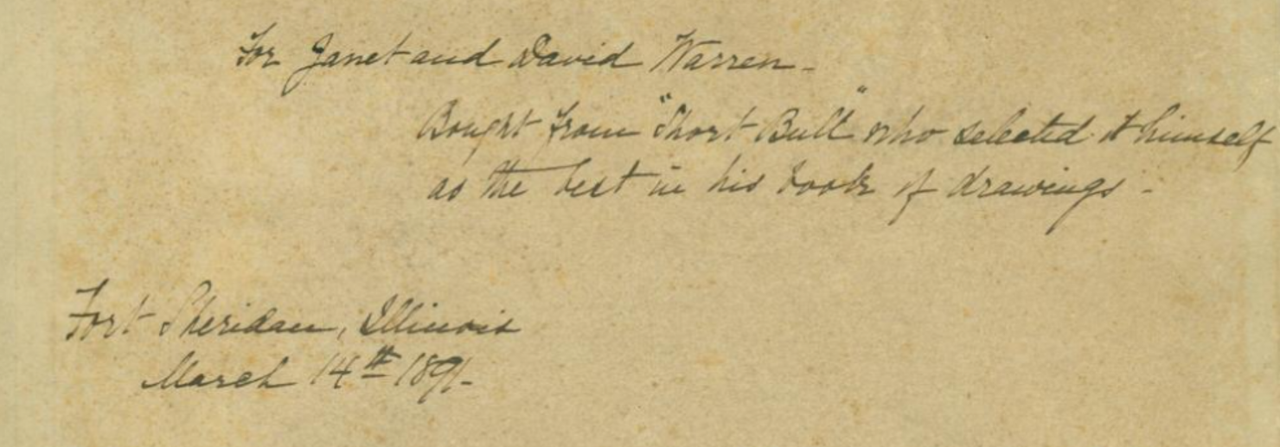 For Janet and David Warren -
Bought from "Short Bull" who selected it himself
as the best in his book of drawings -
Fort Sheridan, Illinois
March 14th 1891-